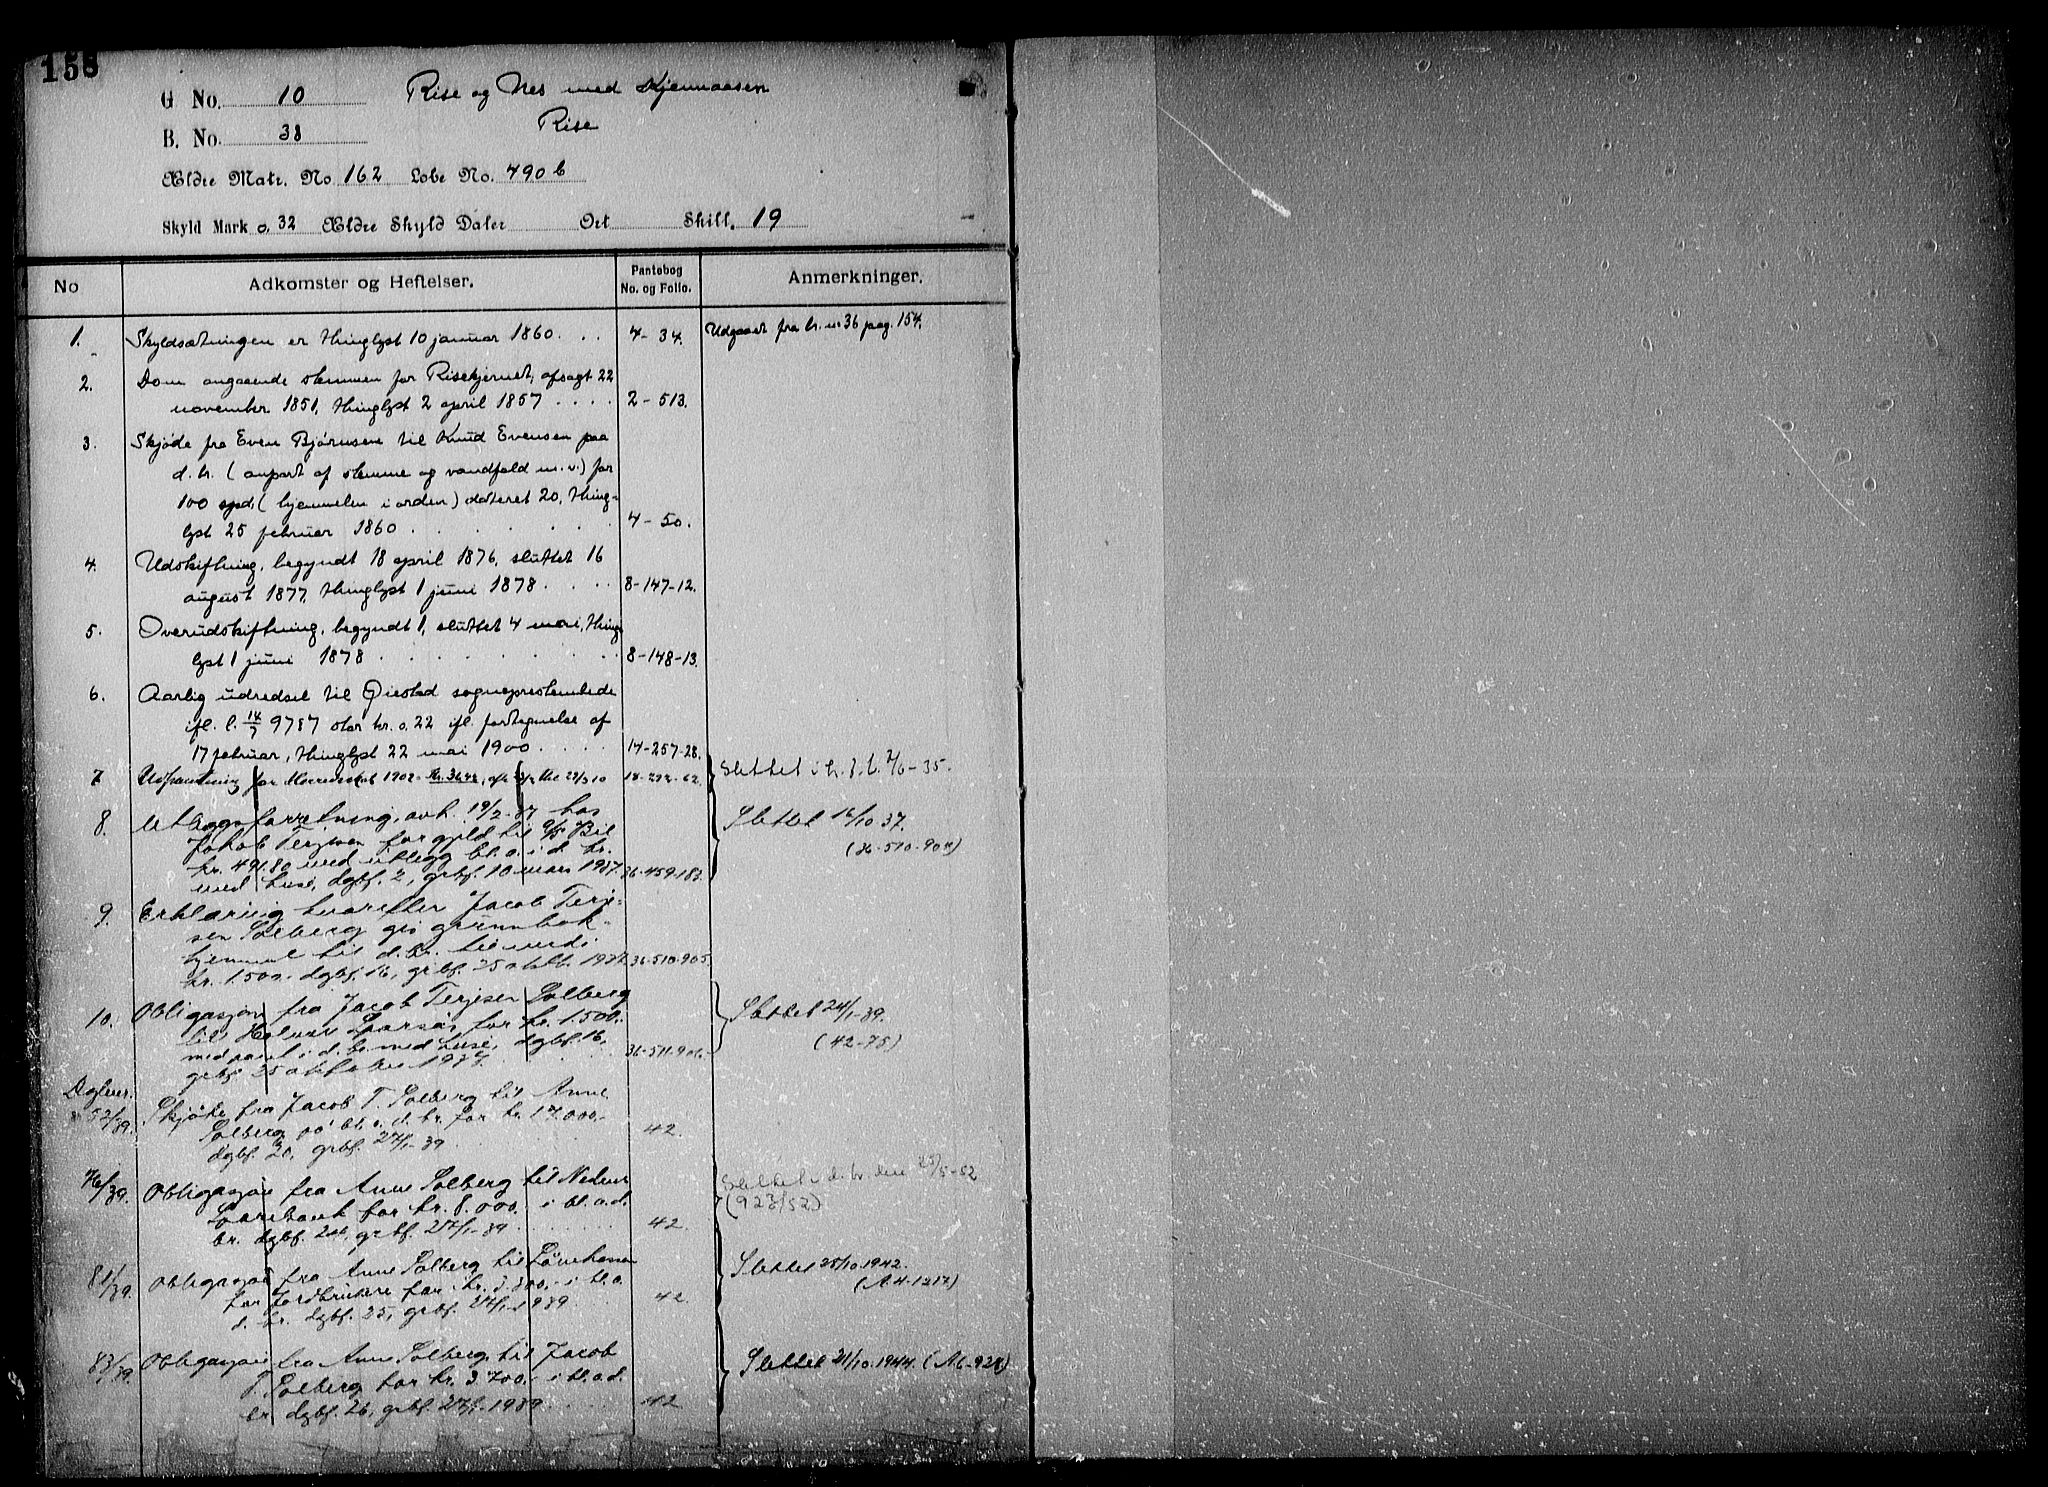 158
G No. 10 Rise og Nes med Kjennaasen
B. No. 38 Rise
Ældre Matr. No 162 Løbe No. 490 b
Skyld Mark 0,32 Ældre Skyld Daler Ort Skill. 19
No Adkomster og Heftelser. Pantebog No. og Folio. Anmerkninger.
1. Skyldsætningen er thinglyst 10 januar 1860 . . . 4-34. Udgaaet fra br. no 36 pag. 154.
2. Dom angaaende stemmen for Risekjernet, afsagt 22
november 1851, thinglyst 2 april 1857 . . . . 2-513.
3. Skjøde fra Even Bjørnsen til Knud Evensen paa
d. br. (anpart af stemme og vandfald m. v.) for
100 spd. (hjemmelen i orden) dateret 20, thing-
lyst 25 februar 1860 . . . . . 4-50.
4. Udskiftning, begyndt 18 april 1876, sluttet 16
august 1877, thinglyst 1 juni 1878 . . . . 8-147-12.
5. Overudskiftning, begyndt 1, sluttet 4 mai, thing-
lyst 1 juni 1878 . . . . . . . 8-148-13.
6. Aarlig udredsel til Øiestad sogneprestembede
ifl. l. 14/7 9787 stor kr. 0.22 ifl. fortegnelse af
17 februar, thinglyst 22 mai 1900 . . . . 14-257-28.
7 Udpantning for 1902 18-292-62. Slettet i h. t. l. 7/6-35.
8. Utleggsforretning, avh. 19/2-37 hos
Jakob Terjesen for gjeld til A/S Bil
kr. 491.80 med utlegg bl. a. i d. br.
med husi, dgbf. 2, grbf. 10 mars 1937. 36-459-183. Slettet 14/10 37.
(36-510-904)
9. Erklæring hvorefter Jacob Terje-
sen Solberg gis grunnbok-
hjemmel til d. br. til verdi
kr. 1.500.- dgbf. 16, grbf. 25 oktb. 1937. 36-510-905.
10. Obligasjon fra Jacob Terjesen Solberg
til Halvor for kr. 1.500.-
med pant i d. br. med husi, dgbf. 16,
grbf. 25 oktober 1937. 36-511-906. Slettet 24/1-39.
(42-75)
Dgbnr.
52/39. Skjøte fra Jacob T. Solberg til Anne
Solberg på bl. a. d. br. for kr. 17.000.-
dgbf. 20, grbf. 27/1-39 42.
76/39. Obligasjon fra Anne Solberg til Nedenes
Sparebank for kr. 8.000.- i bl. a. d.
br. dgbf. 24, grbf. 27/1-39 . . . . 42. Slettet i d. br. den 23/5-52
(923/52)
81/39. Obligasjon fra Anne Solberg til Lånekassen
for Jordbrukere for kr. 3.300,- i bl. a.
d. br. dgbf. 25, grbf. 27/1-1939 . . . 42. Slettet 25/10.1942.
(A.4-1217)
83/39. Obligasjon fra Anne Solberg til Jacob
T. Solberg for kr. 3.700.- i bl. a. d.
br. dgbf. 26, grbf. 27/1.1939 . . . . 42 Slettet 21/10.1944. (A6-928)